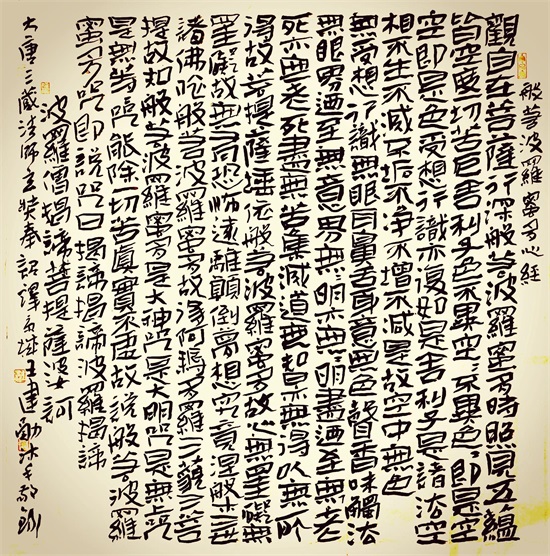 般若波羅蜜多心經
觀自在菩薩行深般若波羅蜜多時照見五蘊
皆空度一切苦厄舍利子色不異空空不異色色即是空
空即是色受想行識亦復如是舍利子是諸法空
相不生不滅不垢不淨不增不減是故空中無色
無受想行識無眼耳鼻舌身意無色聲香味觸法
無眼界乃至無意界無無明亦無無明盡乃至無老
死亦無老死盡無苦集滅道無智亦無得以無所
得故菩提薩埵依般若波羅蜜多故心無罣礙無
罣礙故無有恐怖遠離顛倒夢想究竟涅槃三世
諸佛依般若波羅蜜多故得阿耨多羅三藐三菩
提故知般若波羅蜜多是大神咒是大明咒是無上咒
是無等等咒能除一切苦真實不虛故說般若波羅
蜜多咒即說咒曰揭諦揭諦波羅揭諦
波羅僧揭諦菩提薩婆訶
大唐三藏法師玄奘奉詔譯 王建勛沐手敬錄